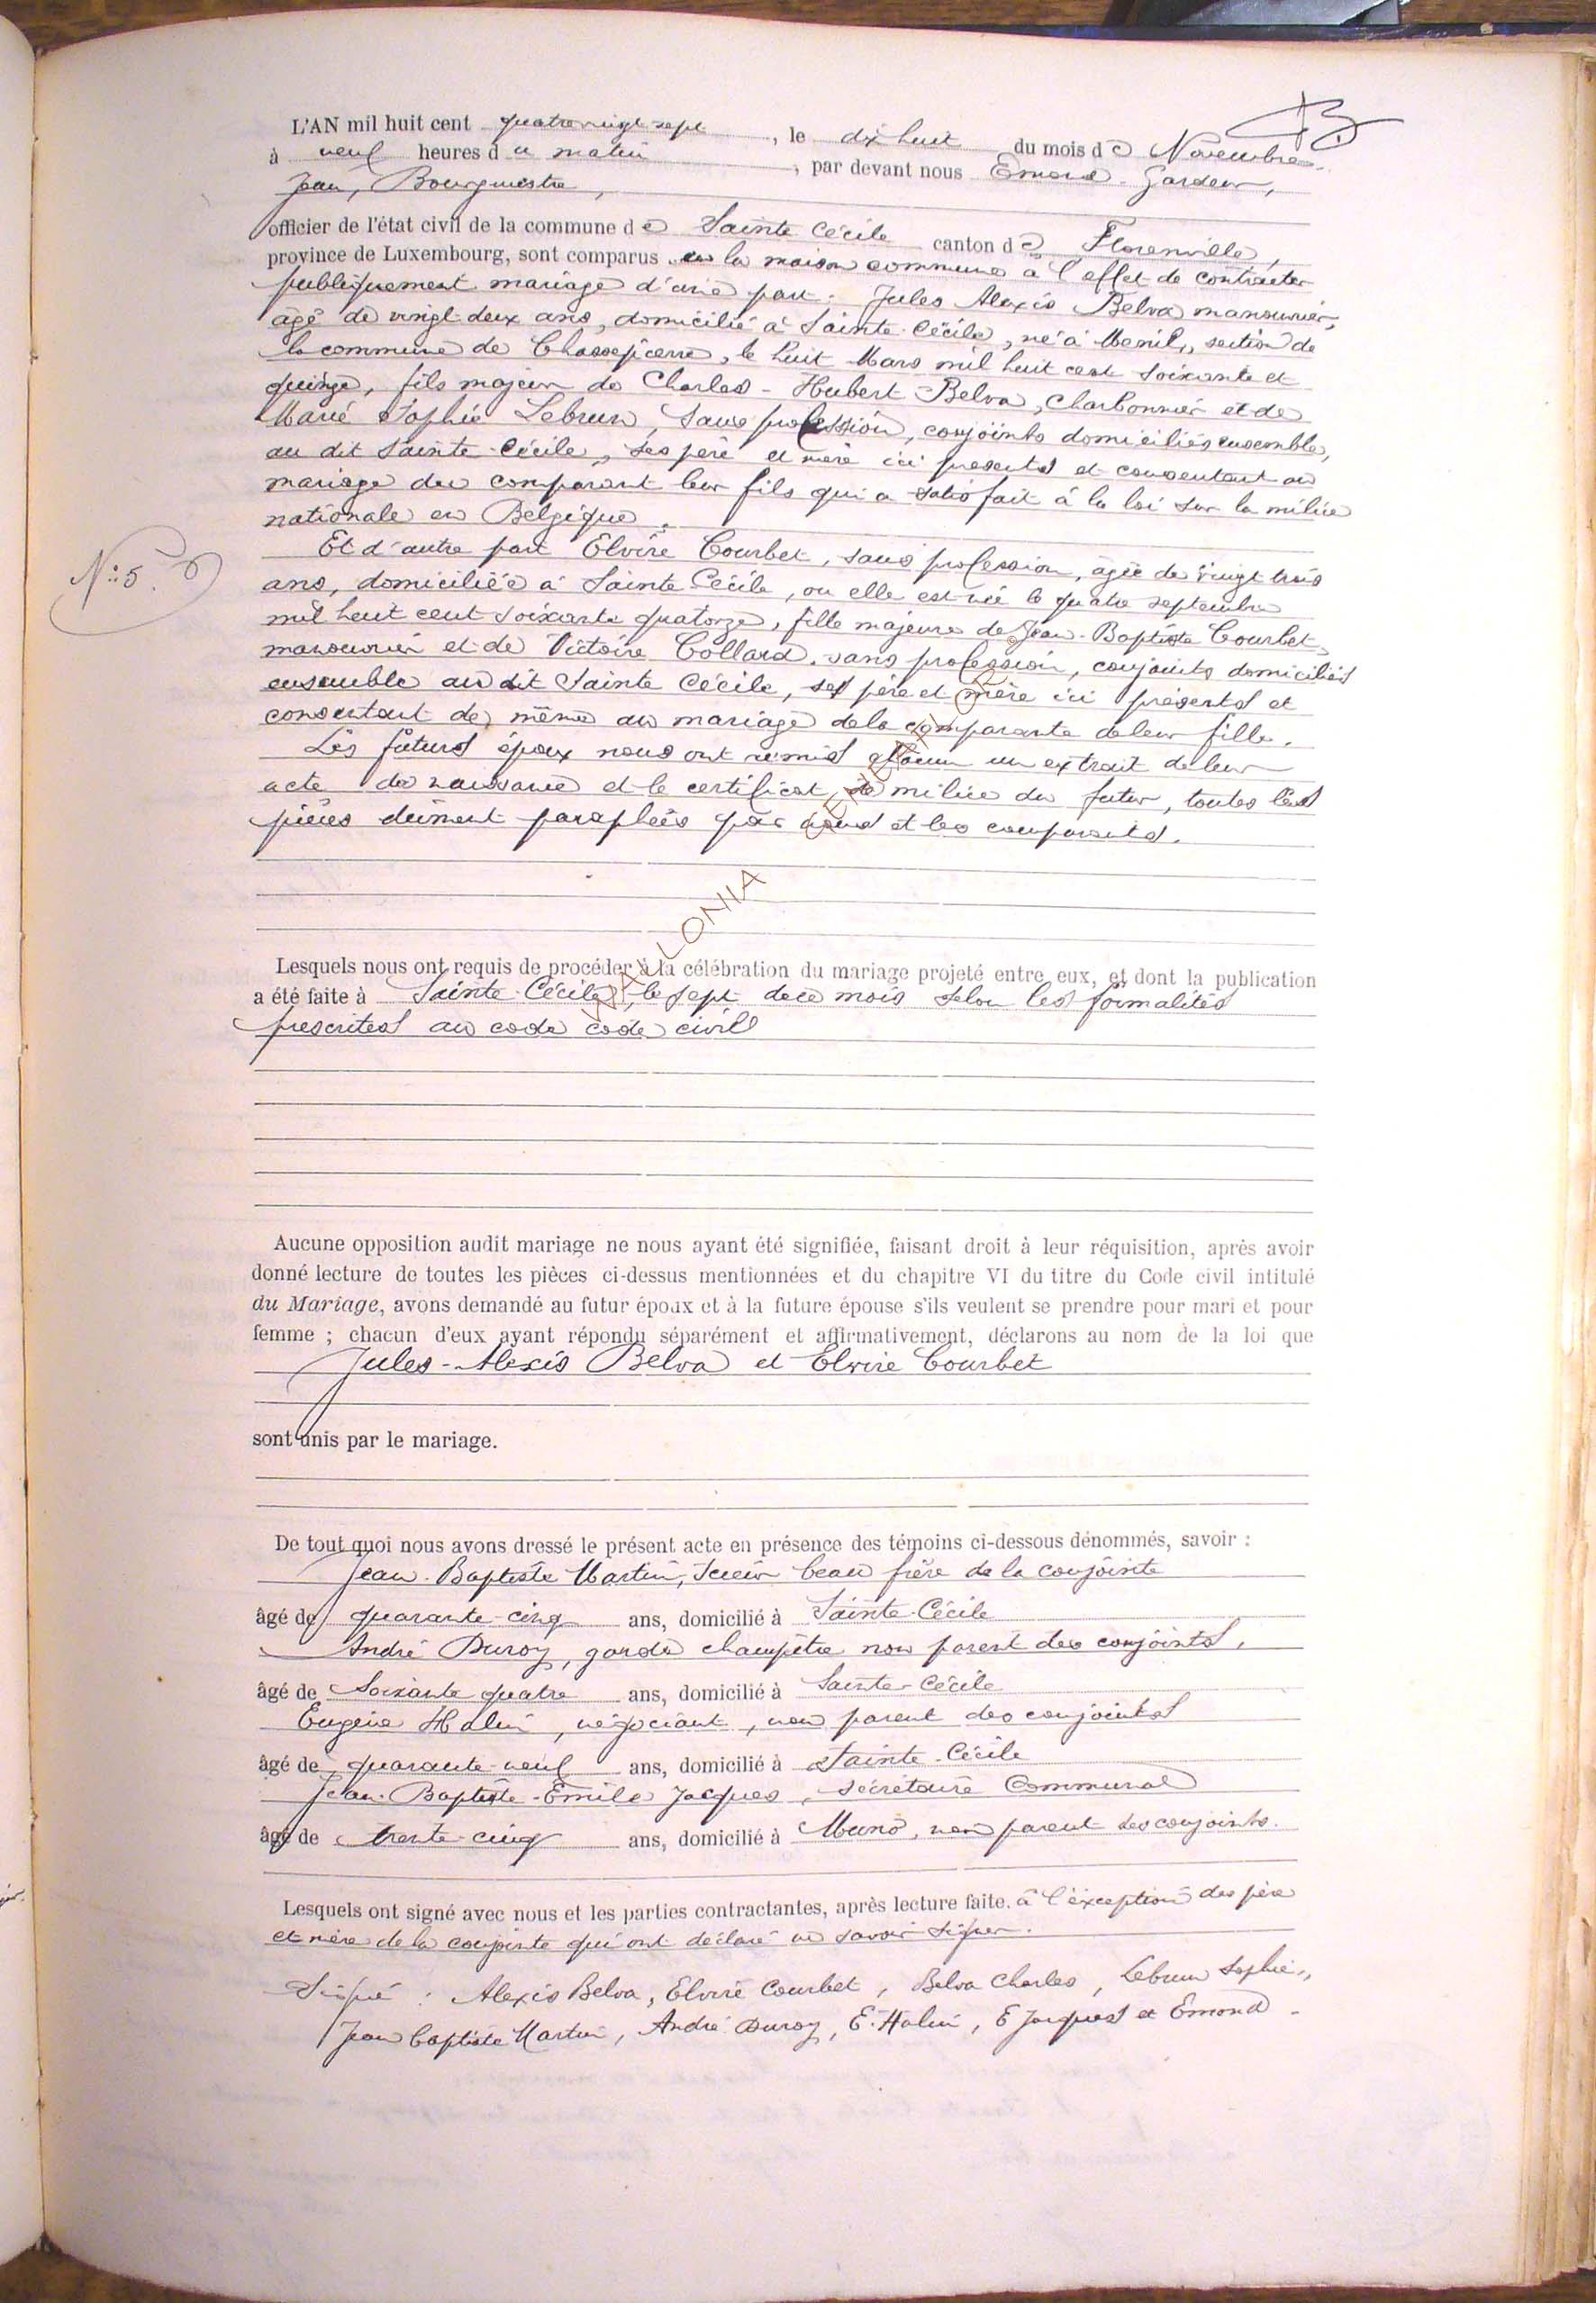 L'AN mil huit cent quatre vingt sept, le dix huit du mois de Novembre
à neuf heures du matin, par devant nous Emond Gardeur,
Jean, Bourgmestre,
officier de l'état civil de la commune de Sainte Cécile canton de Florenville,
province de Luxembourg, sont comparus en la maison commune à l'effet de contracter
publiquement mariage d'une part: Jules Alexis Belva manouvrier,
agé de vingt deux ans, domicilié à Sainte-Cécile, né à Menil, section de
la commune de Chassepierre, le huit Mars mil huit cent soixante et
quinze, fils majeur de Charles-Hubert Belva, Charbonnier et de
Marie Sophie Lebrun, sans profession, conjoints domiciliés ensemble,
au dit Sainte-Cécile, ses père et mère ici présents et consentant au
mariage du comparant leur fils qui a satisfait à la loi sur la milice
nationale en Belgique.
Et d'autre part Elvire Courbet, sans profession, agée de vingt trois
N° 5.
ans, domiciliée à Sainte-Cécile, ou elle est née le quatre septembre
mil huit cent soixante quatorze, fille majeure de Jean-Baptiste Courbet,
manouvrier et de Victoire Collard, sans profession, conjoints domiciliés
ensemble au dit Sainte Cécile, ses père et mère ici présents et
consentant de même au mariage de la comparante de leur fille.
Les futurs époux nous ont remis chacun un extrait de leur
acte de naissance et le certificat de milice du futur, toutes les
pièces dûment paraphées par nous et les comparants.
WALLONIA
Lesquels nous ont requis de procéder à la célébration du mariage projeté entre eux, et dont la publication
a été faite à Sainte-Cécile, le sept de ce mois selon les formalités
prescrites au code code civil
Aucune opposition audit mariage ne nous ayant été signifiée, faisant droit à leur réquisition, après avoir
donné lecture de toutes les pièces ci-dessus mentionnées et du chapitre VI du titre du Code civil intitulé
du Mariage, avons demandé au futur époux et à la future épouse s'ils veulent se prendre pour mari et pour
femme ; chacun d'eux ayant répondu séparément et affirmativement, déclarons au nom de la loi que
Jules-Alexis Belva et Elvire Courbet
sont unis par le mariage.
De tout quoi nous avons dressé le présent acte en présence des témoins ci-dessous dénommés, savoir :
Jean-Baptiste Martin, beau frère de la conjointe
âgé de quarante-cinq ans, domicilié à Sainte-Cécile
André Duroy, garde champêtre non parent des conjoints,
âgé de Soixante quatre ans, domicilié à Sainte-Cécile
Eugène Halin, négociant, non parent des conjoints
âgé de quarante-neuf ans, domicilié à Sainte-Cécile
Jean-Baptiste-Emile Jacques, secrétaire Communal
âgé de trente-cinq ans, domicilié à Muno, non parent des conjoints.
Lesquels ont signé avec nous et les parties contractantes, après lecture faite. à l'exception des père
et mère de la conjointe qui ont déclaré ne savoir signer.
Signé : Alexis Belva, Elvire Courbet, Belva Charles, Lebrun Sophie,
Jean Baptiste Martin, André Duroy, E. Halin, E Jacques et Emond